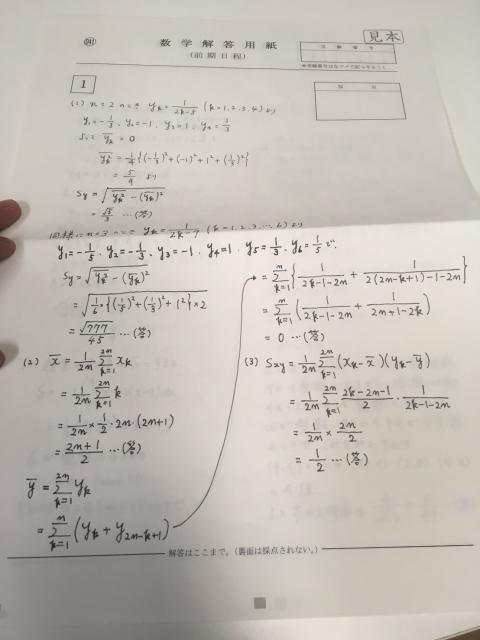 見本
数学解答用紙
(前期日程)
受験番号
1
(1) n=2のとき yₖ=1/(2k-5) (k=1,2,3,4)より
y₁=-1/3, y₂=-1, y₃=1, y₄=1/3
ȳₖ=0
=1/4{(-1/3)²+(-1)²+1²+(1/3)²}
=5/9 より
Sy=√(yₖ²-(ȳₖ)²)
=√5/3 …(答)
同様にn=3のとき yₖ=1/(2k-7) (k=1,2,3,…,6)より
y₁=-1/5, y₂=-1/3, y₃=-1, y₄=1, y₅=1/3, y₆=1/5で、
Sy=√(yₖ²-(ȳₖ)²)
=√(1/6×{(1/5)²+(1/3)²+1²}×2)
=√777/45 …(答)
(2) x̄=1/2n Σ[k=1→2n] xₖ
=1/2n Σ[k=1→2n] k
=1/2n×1/2・2n・(2n+1)
=(2n+1)/2 …(答)
ȳ=Σ[k=1→2n] yₖ
=Σ[k=1→n](yₖ+y₂ₙ₋ₖ₊₁)
=Σ[k=1→n]{1/(2k-1-2n)+1/(2(2n-k+1)-1-2n)}
=Σ[k=1→n](1/(2k-1-2n)+1/(2n+1-2k))
=0 …(答)
(3) Sxy=1/2n Σ[k=1→2n](xₖ-x̄)(yₖ-ȳ)
=1/2n Σ[k=1→2n] (2k-2n-1)/2・1/(2k-1-2n)
=1/2n×2n/2
=1/2 …(答)
解答はここまで。(裏面は採点されない。)